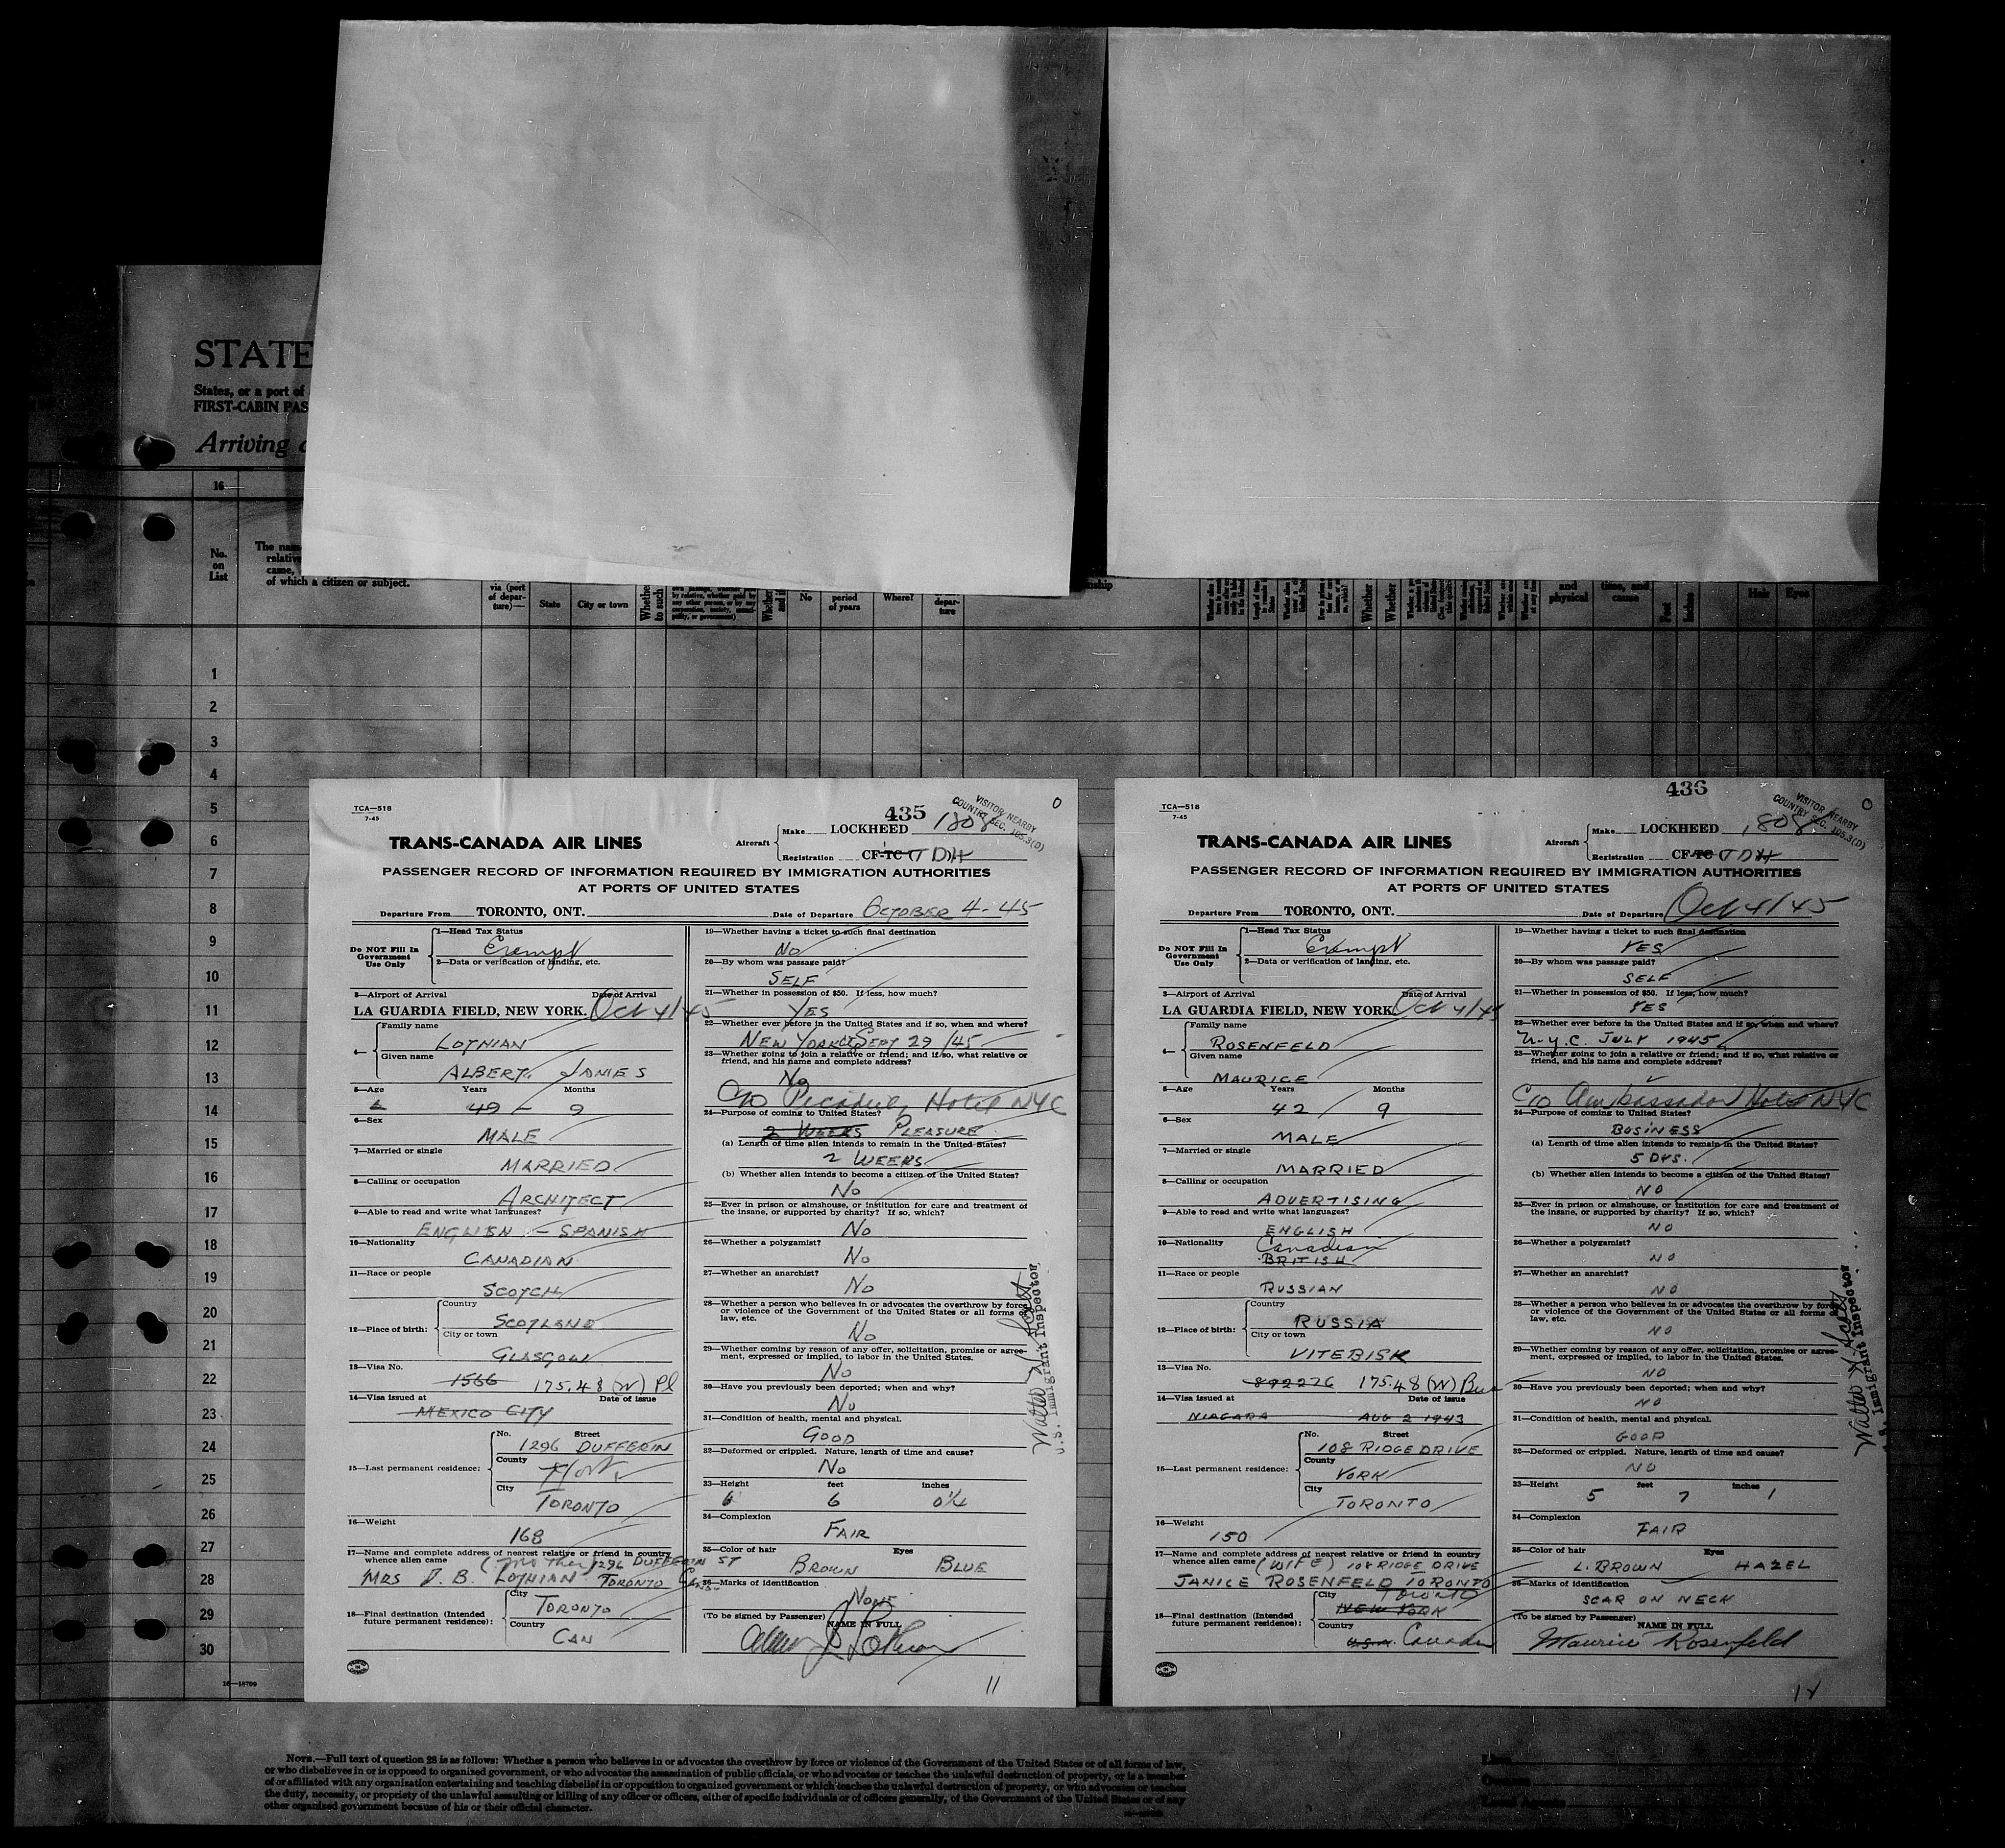 STATE
States, or a port of
FIRST-CABIN PAS
Arriving
16
No.
on
List
The nam
relativ
came,
of which a citizen or subject.
via (port
of depar-
ture)—
State
City or town
Whether
to such
No
period
of years
Where?
depar-
ture
nship
Whether
Whether
and
physical
time, and
cause
Feet
Inches
Hair
Eyes
1
2
3
4
5
6
7
8
9
10
11
12
13
14
15
16
17
18
19
20
21
22
23
24
25
26
27
28
29
30
16—18709
TCA—518
7-45
435
VISITOR NEARBY
COUNTRY SEC. 105.3(D)
0
TRANS-CANADA AIR LINES
Aircraft
Make LOCKHEED 1808
Registration CF-TC TDH
PASSENGER RECORD OF INFORMATION REQUIRED BY IMMIGRATION AUTHORITIES
AT PORTS OF UNITED STATES
Departure From TORONTO, ONT. Date of Departure OCTOBER 4-45
Do NOT Fill In
Government
Use Only
1—Head Tax Status
Exempt
2—Data or verification of landing, etc.
3—Airport of Arrival Date of Arrival
LA GUARDIA FIELD, NEW YORK. Oct 4/45
4—
Family name
LOTHIAN
Given name
ALBERT JAMES
5—Age Years Months
49 9
6—Sex
MALE
7—Married or single
MARRIED
8—Calling or occupation
ARCHITECT
9—Able to read and write what languages?
ENGLISH - SPANISH
10—Nationality
CANADIAN
11—Race or people
SCOTCH
12—Place of birth:
Country
SCOTLAND
City or town
GLASGOW
13—Visa No.
1566 175.48 (W) Pl
14—Visa issued at Date of issue
MEXICO CITY
15—Last permanent residence:
No. Street
1296 DUFFERIN
County
York
City
TORONTO
16—Weight
168
17—Name and complete address of nearest relative or friend in country
whence alien came (mother) 1296 DUFFERIN ST
MRS J. B. LOTHIAN TORONTO
18—Final destination (Intended
future permanent residence):
City
TORONTO
Country
CAN
19—Whether having a ticket to such final destination
NO
20—By whom was passage paid?
SELF
21—Whether in possession of $50. If less, how much?
YES
22—Whether ever before in the United States and if so, when and where?
NEW YORK SEPT 29 /45
23—Whether going to join a relative or friend; and if so, what relative or
friend, and his name and complete address?
No
C/o Picadilly Hotel NYC
24—Purpose of coming to United States?
2 WEEKS PLEASURE
(a) Length of time alien intends to remain in the United States?
2 WEEKS
(b) Whether alien intends to become a citizen of the United States?
No
25—Ever in prison or almshouse, or institution for care and treatment of
the insane, or supported by charity? If so, which?
No
26—Whether a polygamist?
No
27—Whether an anarchist?
No
28—Whether a person who believes in or advocates the overthrow by force
or violence of the Government of the United States or all forms of
law, etc.
No
29—Whether coming by reason of any offer, solicitation, promise or agree-
ment, expressed or implied, to labor in the United States.
No
30—Have you previously been deported; when and why?
No
31—Condition of health, mental and physical.
GOOD
32—Deformed or crippled. Nature, length of time and cause?
No
33—Height feet inches
6 6 0¼
34—Complexion
FAIR
35—Color of hair Eyes
BROWN BLUE
36—Marks of identification
NONE
(To be signed by Passenger) NAME IN FULL
U.S. Immigrant Inspector
11
TCA—518
7-45
436
VISITOR NEARBY
COUNTRY SEC. 105.3(D)
0
TRANS-CANADA AIR LINES
Aircraft
Make LOCKHEED 1808
Registration CF-TC TDH
PASSENGER RECORD OF INFORMATION REQUIRED BY IMMIGRATION AUTHORITIES
AT PORTS OF UNITED STATES
Departure From TORONTO, ONT. Date of Departure Oct 4/45
Do NOT Fill In
Government
Use Only
1—Head Tax Status
Exempt
2—Data or verification of landing, etc.
3—Airport of Arrival Date of Arrival
LA GUARDIA FIELD, NEW YORK Oct 4/45
4—
Family name
ROSENFELD
Given name
MAURICE
5—Age Years Months
42 9
6—Sex
MALE
7—Married or single
MARRIED
8—Calling or occupation
ADVERTISING
9—Able to read and write what languages?
ENGLISH
10—Nationality
Canadian
BRITISH
11—Race or people
RUSSIAN
12—Place of birth:
Country
RUSSIA
City or town
VITEBISK
13—Visa No.
892276 175.48 (W) Bus
14—Visa issued at Date of issue
NIAGARA AUG 2 1943
15—Last permanent residence:
No. Street
108 RIDGE DRIVE
County
YORK
City
TORONTO
16—Weight
150
17—Name and complete address of nearest relative or friend in country
whence alien came (WIFE) 108 RIDGE DRIVE
JANICE ROSENFELD TORONTO
18—Final destination (Intended
future permanent residence):
City
Toronto
NEW YORK
Country
U.S.A. Canada
19—Whether having a ticket to such final destination
YES
20—By whom was passage paid?
SELF
21—Whether in possession of $50. If less, how much?
YES
22—Whether ever before in the United States and if so, when and where?
N.Y.C. JULY 1945
23—Whether going to join a relative or friend; and if so, what relative or
friend, and his name and complete address?
C/o Ambassador Hotel NYC
24—Purpose of coming to United States?
BUSINESS
(a) Length of time alien intends to remain in the United States?
5 DYS.
(b) Whether alien intends to become a citizen of the United States?
NO
25—Ever in prison or almshouse, or institution for care and treatment of
the insane, or supported by charity? If so, which?
NO
26—Whether a polygamist?
NO
27—Whether an anarchist?
NO
28—Whether a person who believes in or advocates the overthrow by force
or violence of the Government of the United States or all forms of
law, etc.
NO
29—Whether coming by reason of any offer, solicitation, promise or agree-
ment, expressed or implied, to labor in the United States.
NO
30—Have you previously been deported; when and why?
NO
31—Condition of health, mental and physical.
GOOD
32—Deformed or crippled. Nature, length of time and cause?
NO
33—Height feet inches
5 7 1
34—Complexion
FAIR
35—Color of hair Eyes
L. BROWN HAZEL
36—Marks of identification
SCAR ON NECK
(To be signed by Passenger) NAME IN FULL
Maurice Rosenfeld
Immigrant Inspector
NOTE.—Full text of question 28 is as follows: Whether a person who believes in or advocates the overthrow by force or violence of the Government of the United States or of all forms of law,
or who disbelieves in or is opposed to organized government, or who advocates the assassination of public officials, or who advocates or teaches the unlawful destruction of property, or is a member
of or affiliated with any organization entertaining and teaching disbelief in or opposition to organized government or which teaches the unlawful destruction of property, or who advocates or teaches
the duty, necessity, or propriety of the unlawful assaulting or killing of any officer or officers, either of specific individuals or of officers generally, of the Government of the United States or of any
other organized government because of his or their official character.